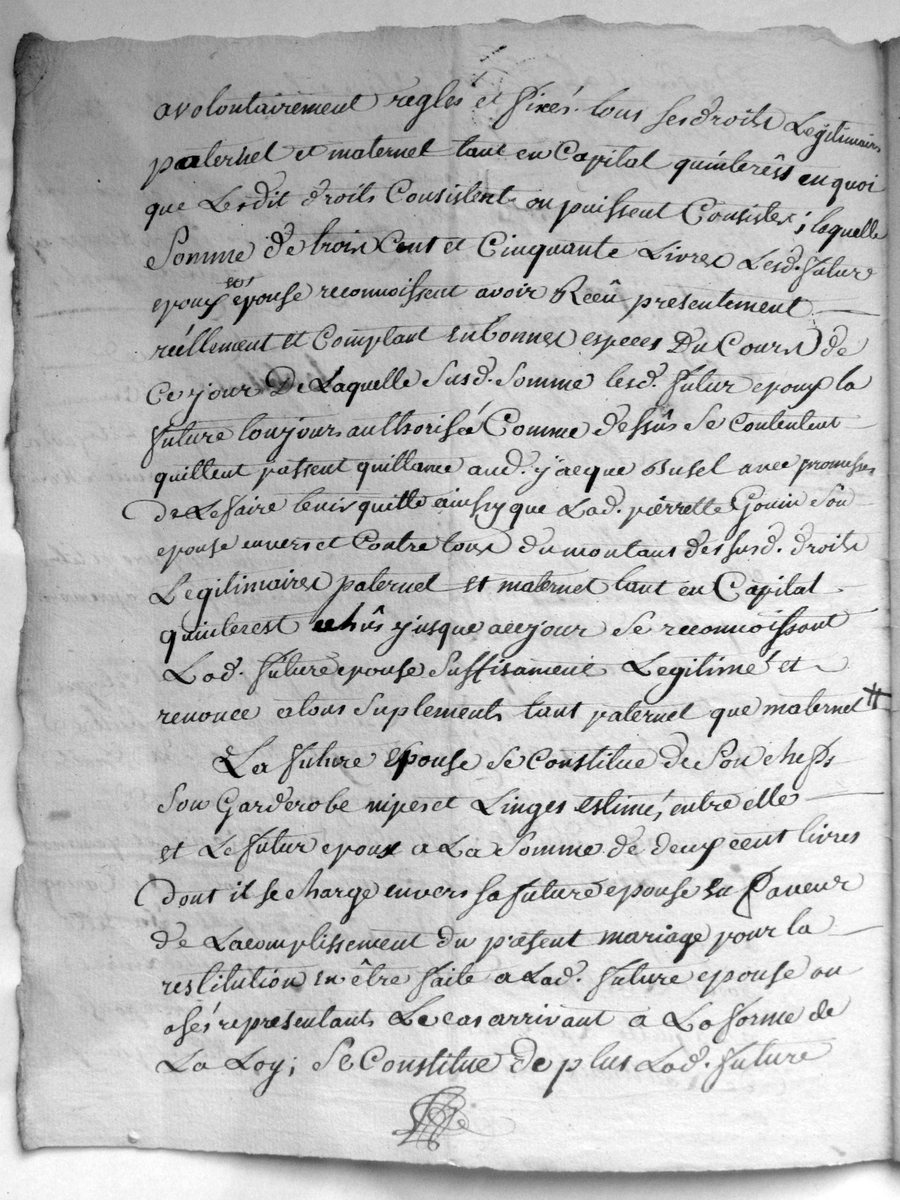 a volontairement reglés et fixés tous ses droits Legitimaires
paternel et maternel tant en Capital quinterêts en quoi
que Lesdit droits Consistent ou puissent Consister; laquelle
Somme de trois Cent et Cinquante Livres Lesd. future
epoux et epouse reconnoissent avoir Reçû presentement
réellement et Comptant en bonnes especes Du Cours de
Ce jour De Laquelle Susd. Somme lesd. futur epoux la
future toujours authorisée Comme dessûs Se Contentent
quittent passent quittance aud. jacque Busel avec promesses
De Le faire tenir quitte ainsy que Lad. pierrette Gonin Son
epouse envers et Contre tous du montans des susd. droits
Legitimaires paternel et maternel tant en Capital
quinterest echûs jusque a ce jour Se reconnoissant
Lad. future epouse Suffisament Legitimé et
renonce a tous Suplements tant paternel que maternel #
La future Epouse Se Constitue de Son chefs
Son Garderobe nipes et Linges estimés entre elle
et Le futur epoux a La Somme de deux cent livres
dont il se charge envers sa future epouse En faveur
de Lacomplissement du present mariage pour la
restitution en être faite a Lad. future epouse ou
a sés representants Le cas arrivant a La forme de
La Loy; Se Constitue de plus Lad. future